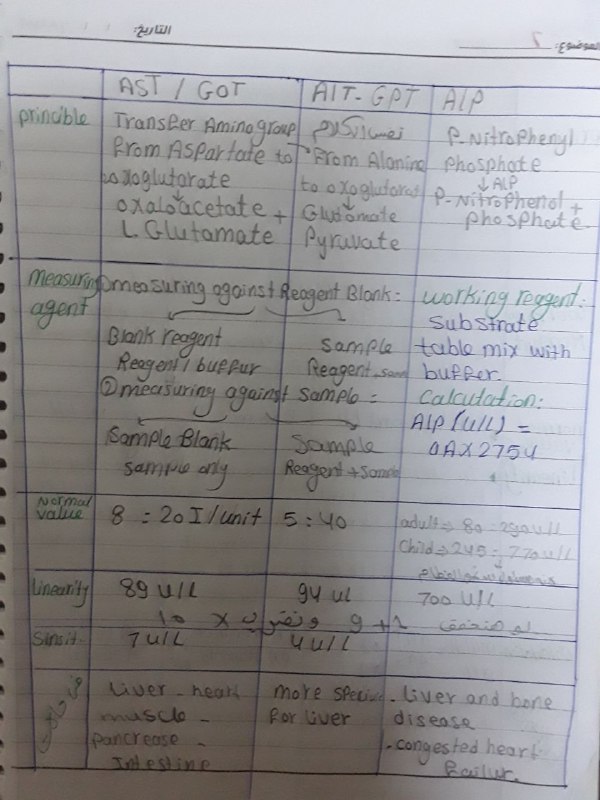 التاريخ:
الموضوع:
AST / GOT
AlT-GPT
AlP
princible
Transfer Amino group
From Aspartate to
oxoglutarate
oxaloacetate +
L Glutamate
نفس الكلام
From Alanine
to oxoglutarat
Glutamate
Pyruvate
P-Nitrophenyl
phosphate
↓ AlP
P-Nitrophenol +
phosphate.
measuring
agent
① measuring against Reagent Blank:
Blank reagent
Reagent / buffur
sample
Reagent + sam
② measuring against sample =
Sample Blank
sample only
Sample
Reagent + Samp
working regent:
substrate
table mix with
buffer
calculation:
AlP (u/l) =
ΔA X 2754
Normal
value
8 : 20 I/unit
5 : 40
adult → 80 : 290 u/l
Child → 245 : 770 u/L
linearity
89 u/L
94 ul
700 u/L
1 + 9 ونضرب x 10
لو متحقق
Sinsit.
7 u/L
4 u/L
liver - heart
muscle -
pancrease -
Intestine
more speci
for liver
- liver and bone
disease
- congested heart
failur.